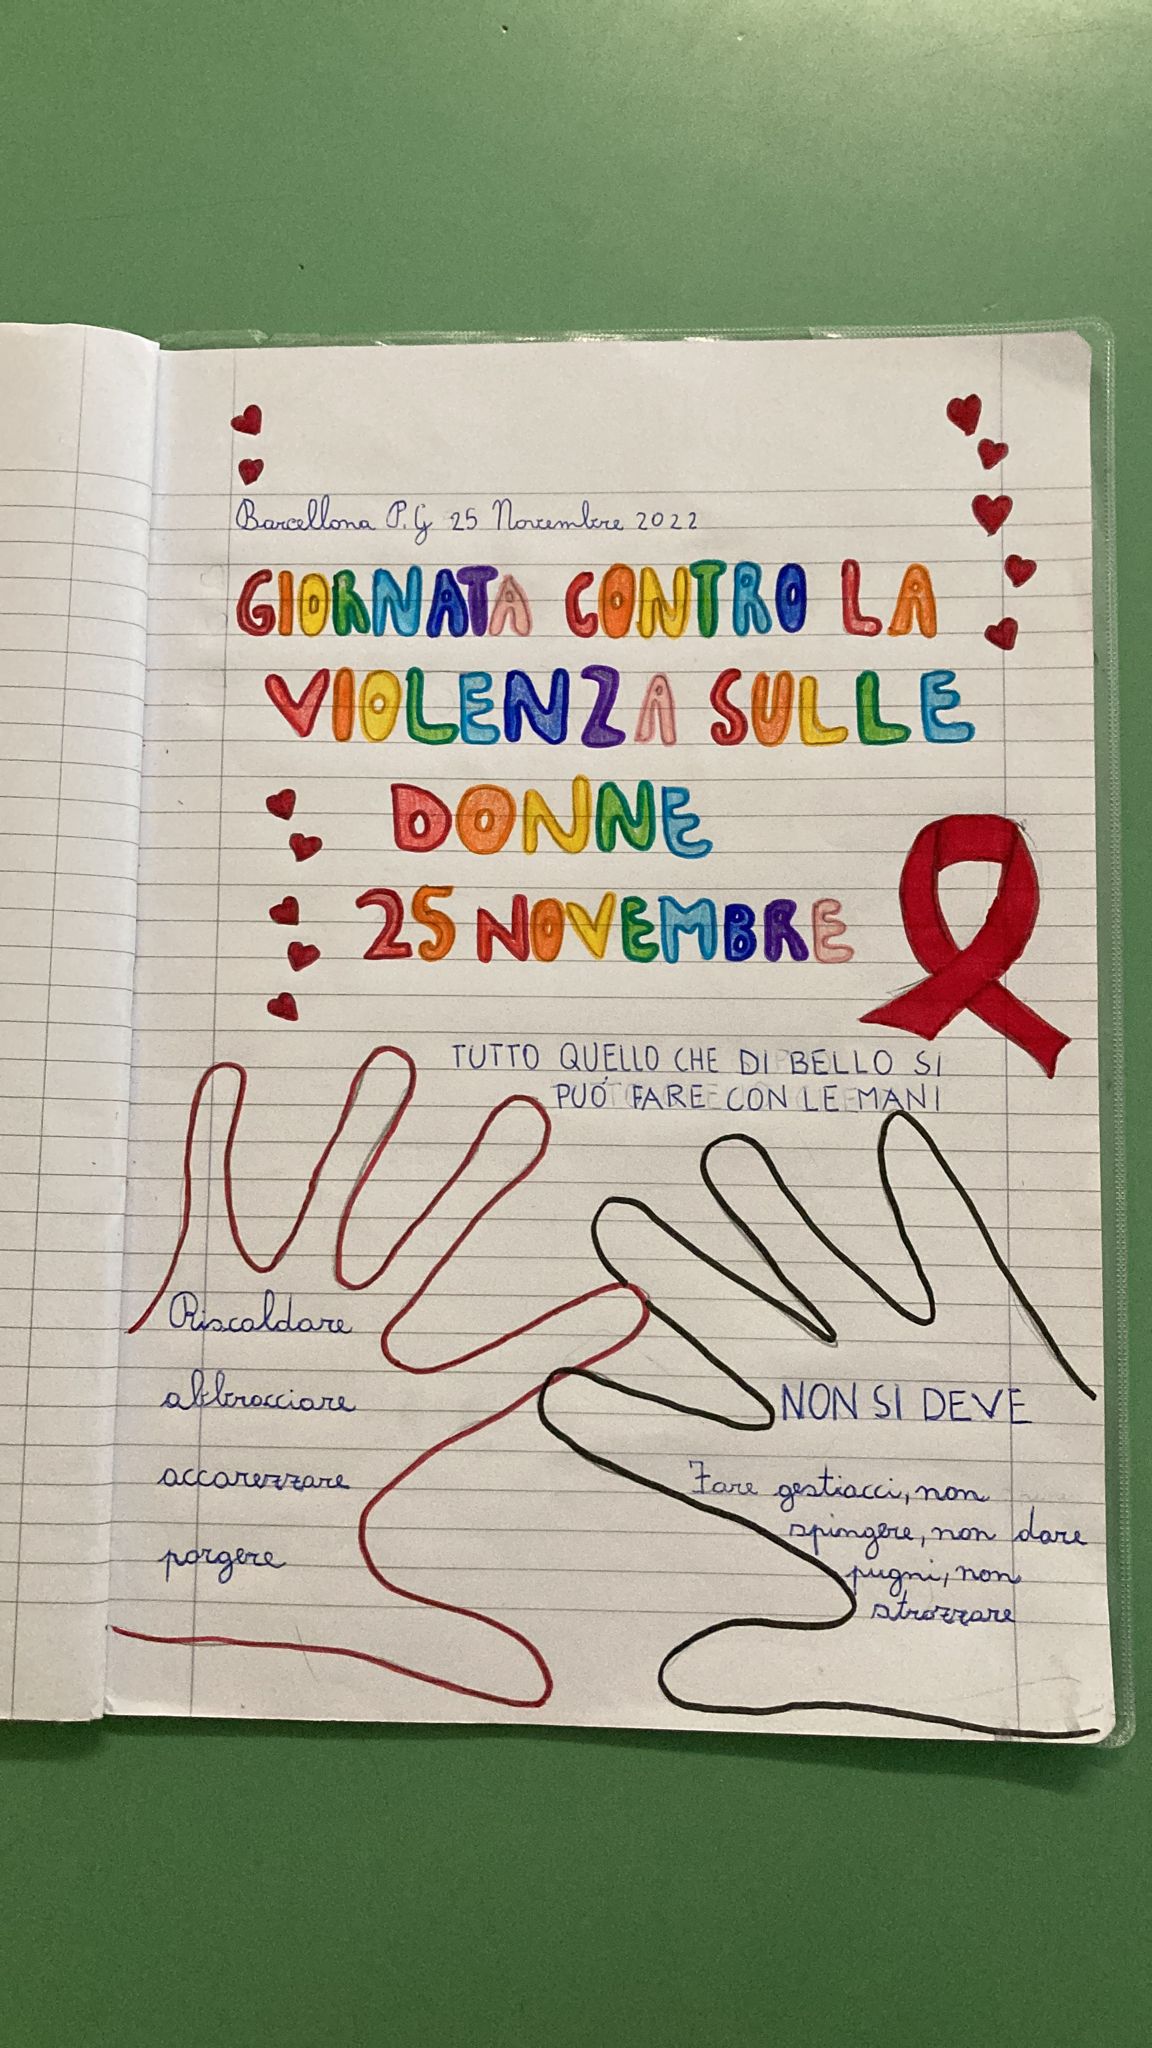 Barcellona P.G 25 Novembre 2022
GIORNATA CONTRO LA
VIOLENZA SULLE
DONNE
25 NOVEMBRE
TUTTO QUELLO CHE DI BELLO SI
PUÓ FARE CON LE MANI
Riscaldare
abbracciare
accarezzare
porgere
NON SI DEVE
Fare gestiacci, non
spingere, non dare
pugni, non
strozzare